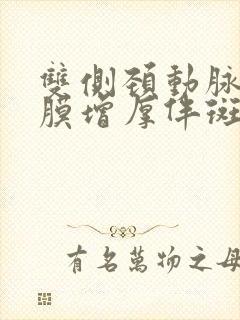 雙側頚動脉
膜增厚伴斑
有名萬物之母